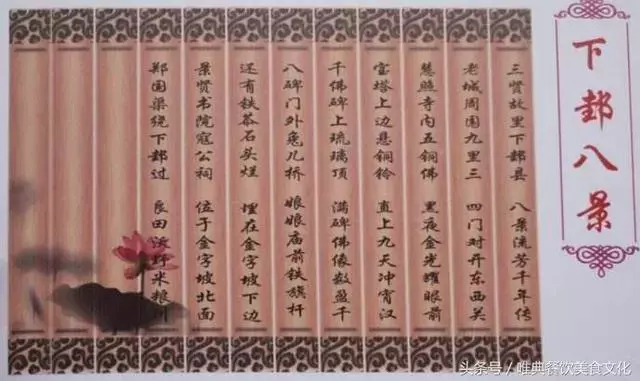 下邽八景
三贤故里下邽县 八景流芳千年传
老城周围九里三 四门对开东西关
慧照寺内五铜佛 黑夜金光耀眼前
宝塔上边悬铜铃 直上九天冲宵汉
千佛碑上琉璃顶 满碑佛像数盈千
八碑门外兔儿桥 娘娘庙前铁旗杆
还有铁茶石头烂 埋在金字坡下边
景贤书院寇公祠 位于金字坡北面
郑国渠绕下邽过 良田沃野米粮川
头条号／唯典餐饮美食文化